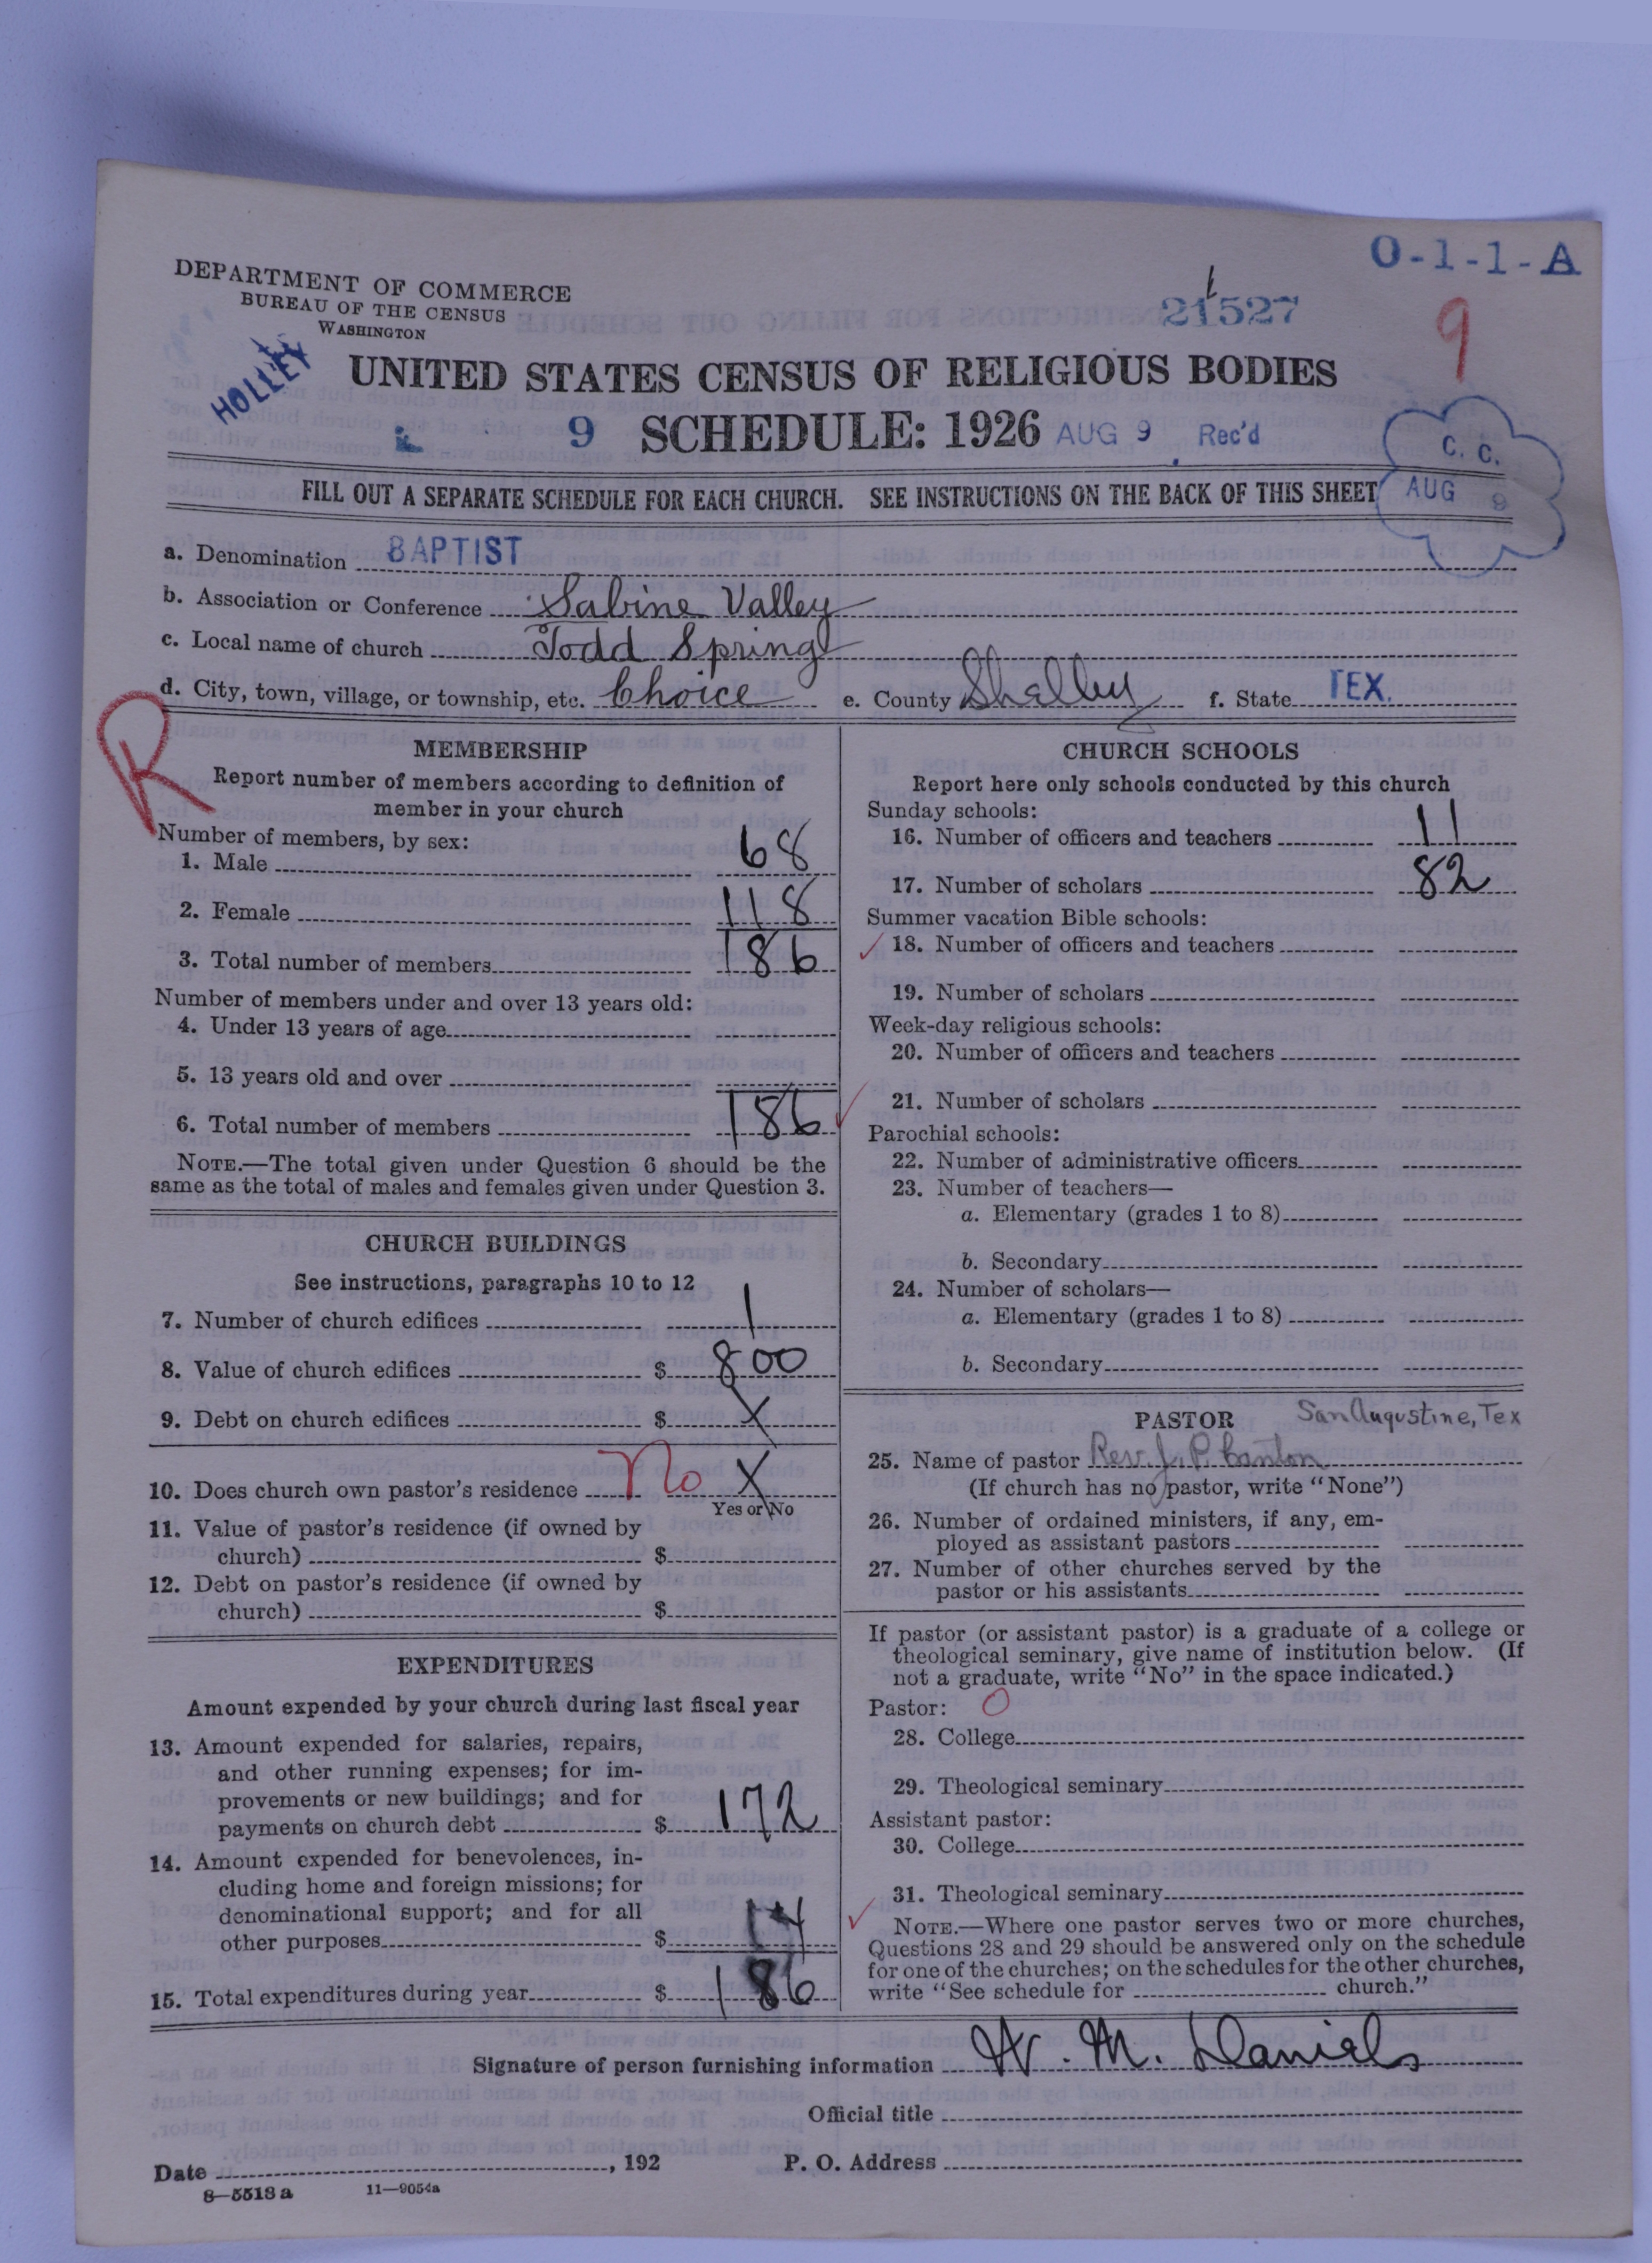 O-1-1-A
DEPARTMENT OF COMMERCE
BUREAU OF THE CENSUS
WASHINGTON
21527
9
HOLLEY
UNITED STATES CENSUS OF RELIGIOUS BODIES
9 SCHEDULE: 1926 AUG 9 Rec'd
C. C.
AUG 9
FILL OUT A SEPARATE SCHEDULE FOR EACH CHURCH. SEE INSTRUCTIONS ON THE BACK OF THIS SHEET
a. Denomination BAPTIST
b. Association or Conference Sabine Valley
c. Local name of church Todd Springs
d. City, town, village, or township, etc. Choice e. County Shelby f. State TEX.
R
MEMBERSHIP
Report number of members according to definition of
member in your church
Number of members, by sex:
1. Male 68
2. Female 118
3. Total number of members 186
Number of members under and over 13 years old:
4. Under 13 years of age
5. 13 years old and over
6. Total number of members 186
NOTE.—The total given under Question 6 should be the
same as the total of males and females given under Question 3.
CHURCH BUILDINGS
See instructions, paragraphs 10 to 12
7. Number of church edifices 1
8. Value of church edifices $ 800
9. Debt on church edifices $ X
10. Does church own pastor's residence No X
Yes or No
11. Value of pastor's residence (if owned by
church) $
12. Debt on pastor's residence (if owned by
church) $
EXPENDITURES
Amount expended by your church during last fiscal year
13. Amount expended for salaries, repairs,
and other running expenses; for im-
provements or new buildings; and for
payments on church debt $ 172
14. Amount expended for benevolences, in-
cluding home and foreign missions; for
denominational support; and for all
other purposes $ 14
15. Total expenditures during year $ 186
CHURCH SCHOOLS
Report here only schools conducted by this church
Sunday schools:
16. Number of officers and teachers 11
17. Number of scholars 82
Summer vacation Bible schools:
18. Number of officers and teachers
19. Number of scholars
Week-day religious schools:
20. Number of officers and teachers
21. Number of scholars
Parochial schools:
22. Number of administrative officers
23. Number of teachers—
a. Elementary (grades 1 to 8)
b. Secondary
24. Number of scholars—
a. Elementary (grades 1 to 8)
b. Secondary
PASTOR San Augustine, Tex
25. Name of pastor Rev. J. P. Canton
(If church has no pastor, write "None")
26. Number of ordained ministers, if any, em-
ployed as assistant pastors
27. Number of other churches served by the
pastor or his assistants
If pastor (or assistant pastor) is a graduate of a college or
theological seminary, give name of institution below. (If
not a graduate, write "No" in the space indicated.)
Pastor: O
28. College
29. Theological seminary
Assistant pastor:
30. College
31. Theological seminary
NOTE.—Where one pastor serves two or more churches,
Questions 28 and 29 should be answered only on the schedule
for one of the churches; on the schedules for the other churches,
write "See schedule for church."
Signature of person furnishing information W. M. Daniels
Official title
Date , 192 P. O. Address
8—5518 a 11—9054a